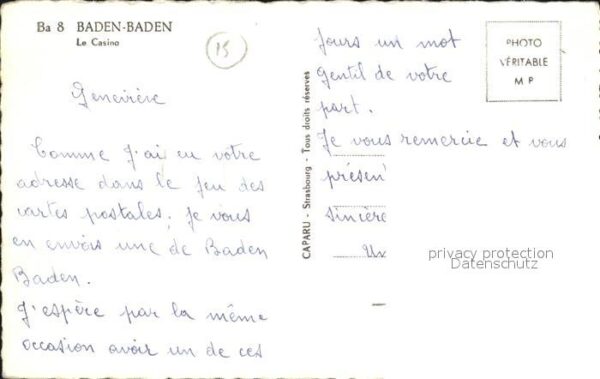 Ba 8 BADEN-BADEN
Le Casino
15
Geneviève
Comme J'ai eu votre
adresse dans le Jeu des
cartes postales. Je vous
en envois une de Baden
Baden.
J'espère par la même
occasion avoir un de ces
CAPARU - Strasbourg - Tous droits réserves
Jours un mot
gentil de votre
part.
Je vous remercie et vous
présen
sincère
PHOTO
VÉRITABLE
M P
privacy protection
Datenschutz